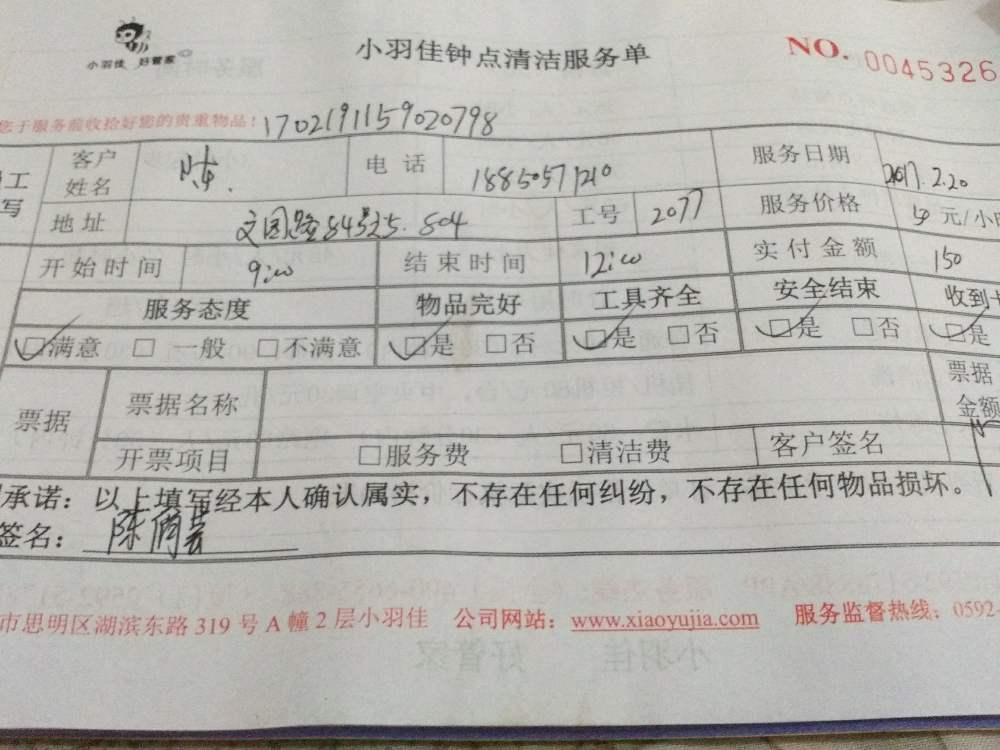 小羽佳 好管家
小羽佳钟点清洁服务单
NO. 0045326
您于服务前收拾好您的贵重物品! 1702191159020798
工 客户 陈. 电话 18850571210 服务日期 2017.2.20
写 姓名
地址 文园路84号之5. 804 工号 2077 服务价格 50元/小
开始时间 9:00 结束时间 12:00 实付金额 150
服务态度 物品完好 工具齐全 安全结束 收到
□满意 □一般 □不满意 □是 □否 □是 □否 □是 □否 □是
票据 票据名称 票据
金额
开票项目 □服务费 □清洁费 客户签名
承诺：以上填写经本人确认属实，不存在任何纠纷，不存在任何物品损坏。
签名：陈
市思明区湖滨东路319号A幢2层小羽佳 公司网站：www.xiaoyujia.com 服务监督热线：0592